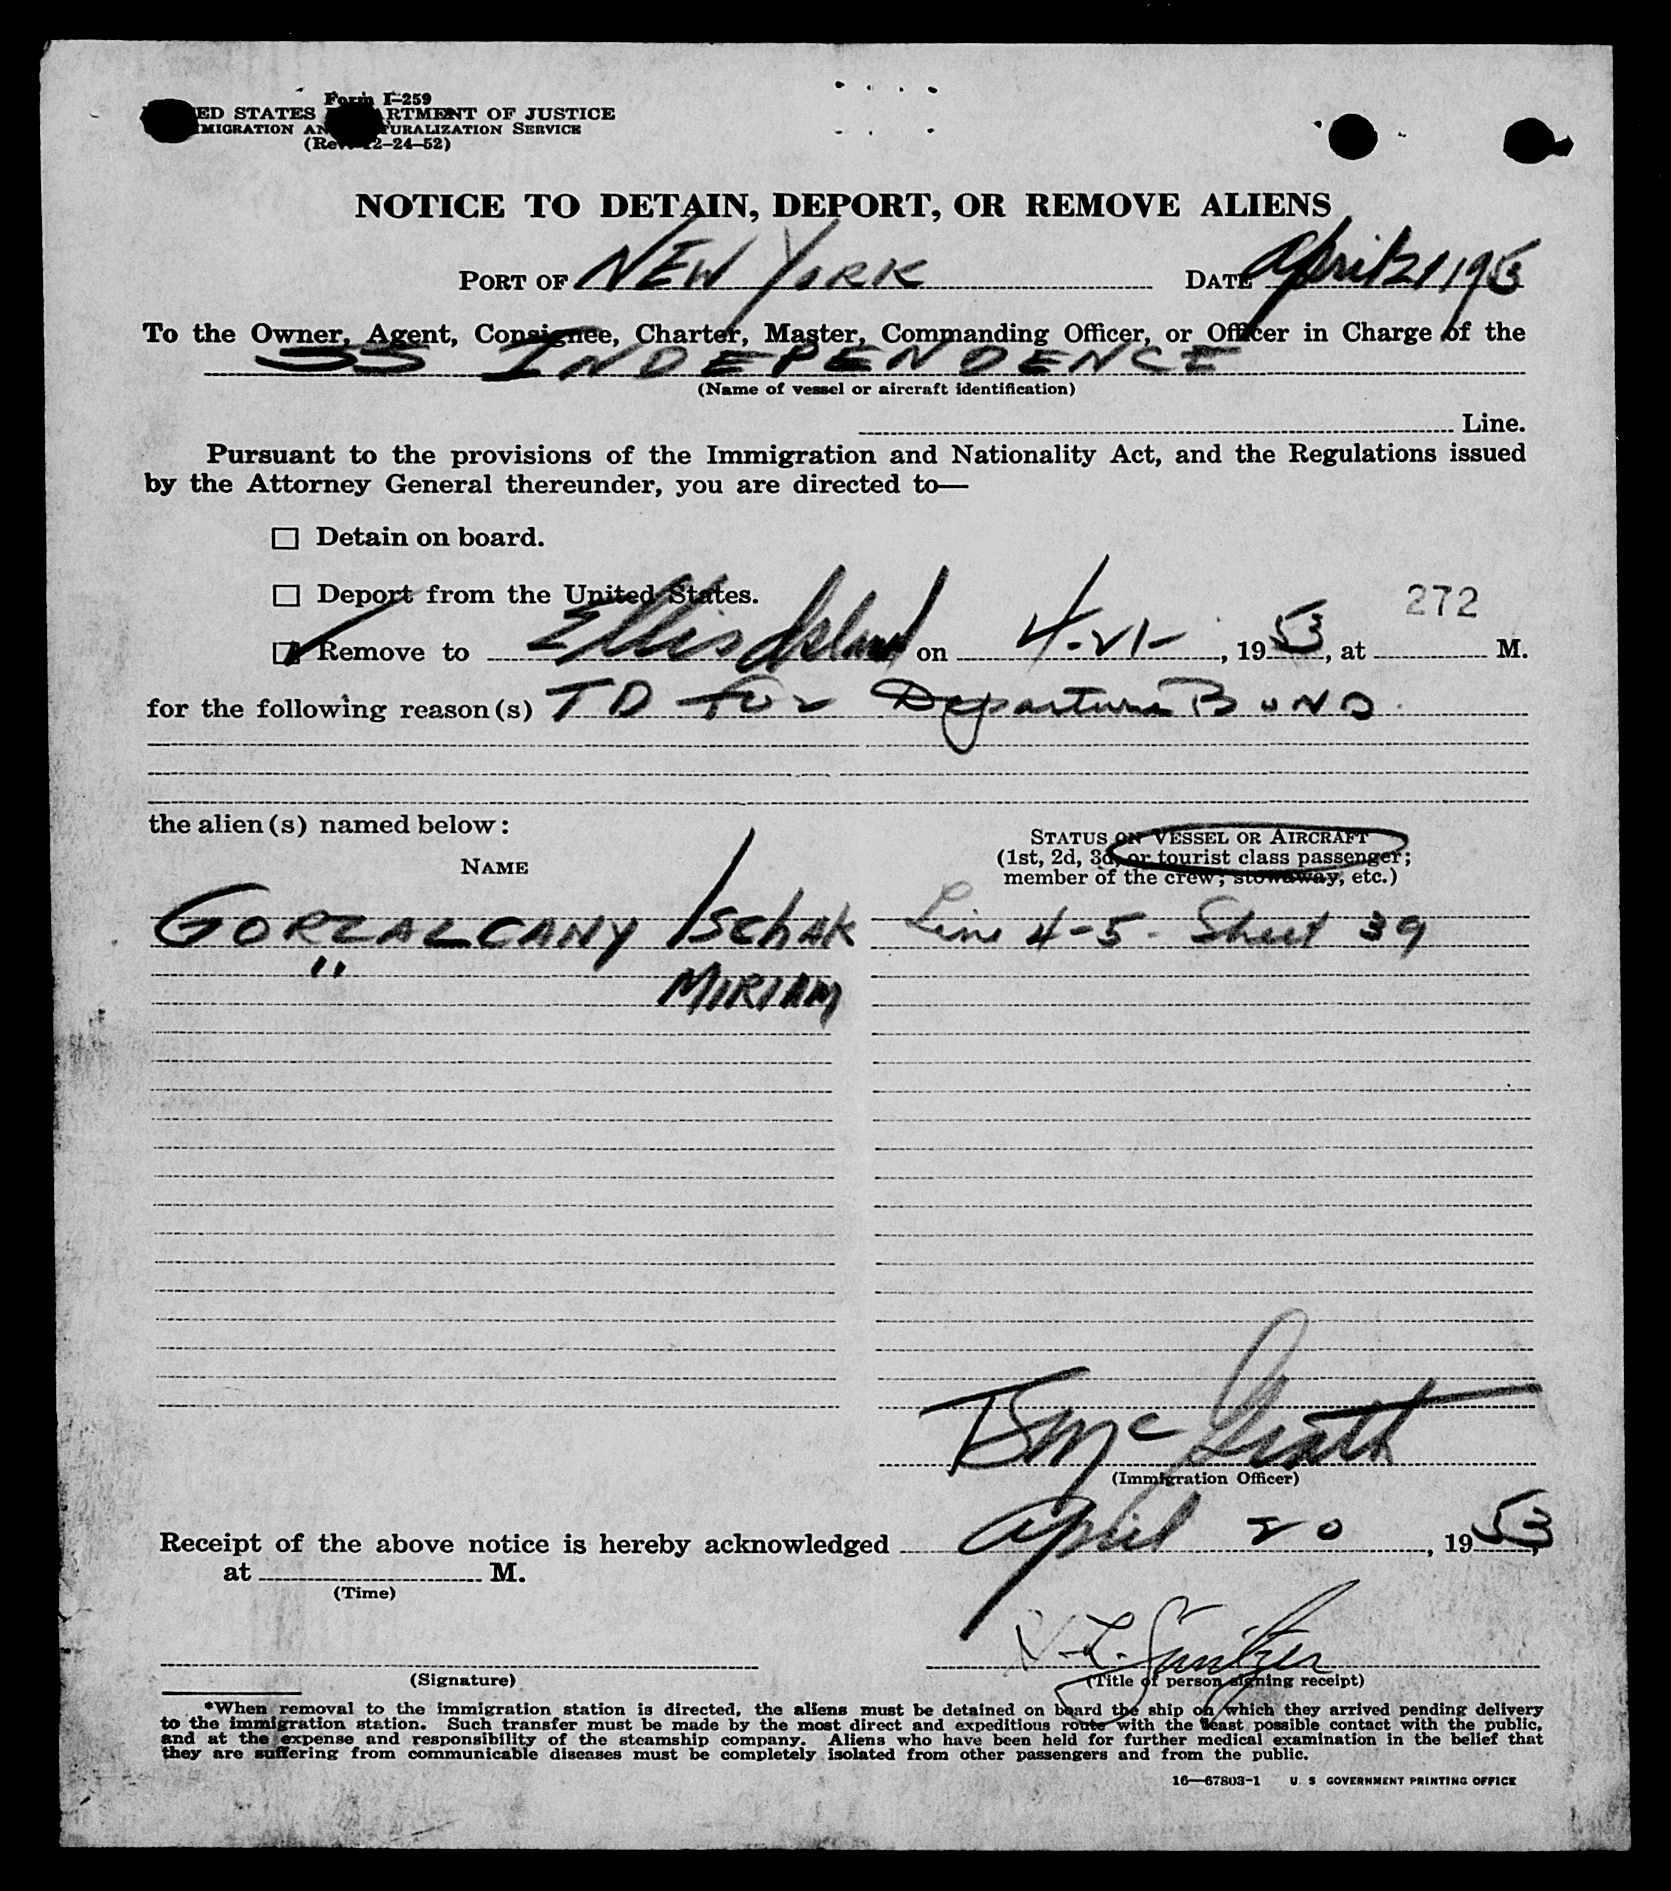 Form I-259
ED STATES RTMENT OF JUSTICE
MIGRATION AN URALIZATION SERVICE
(Rev. 12-24-52)
NOTICE TO DETAIN, DEPORT, OR REMOVE ALIENS
PORT OF NEW YORK DATE April 21 1953
To the Owner, Agent, Consignee, Charter, Master, Commanding Officer, or Officer in Charge of the
SS INDEPENDENCE
(Name of vessel or aircraft identification)
Line.
Pursuant to the provisions of the Immigration and Nationality Act, and the Regulations issued
by the Attorney General thereunder, you are directed to—
☐ Detain on board.
☐ Deport from the United States.
272
☑ Remove to Ellis Island on 4-21-, 1953, at M.
for the following reason(s) TD for Departure BOND
the alien(s) named below:
STATUS ON VESSEL OR AIRCRAFT
(1st, 2d, 3d, or tourist class passenger;
member of the crew, stowaway, etc.)
NAME
GORZALCANY ISCHAK Line 4-5- Sheet 39
" MIRIAM
McGrath
(Immigration Officer)
Receipt of the above notice is hereby acknowledged April 20, 1953,
at M.
(Time)
(Signature) (Title of person signing receipt)
*When removal to the immigration station is directed, the aliens must be detained on board the ship on which they arrived pending delivery
to the immigration station. Such transfer must be made by the most direct and expeditious route with the least possible contact with the public,
and at the expense and responsibility of the steamship company. Aliens who have been held for further medical examination in the belief that
they are suffering from communicable diseases must be completely isolated from other passengers and from the public.
16—67803-1 U. S GOVERNMENT PRINTING OFFICE